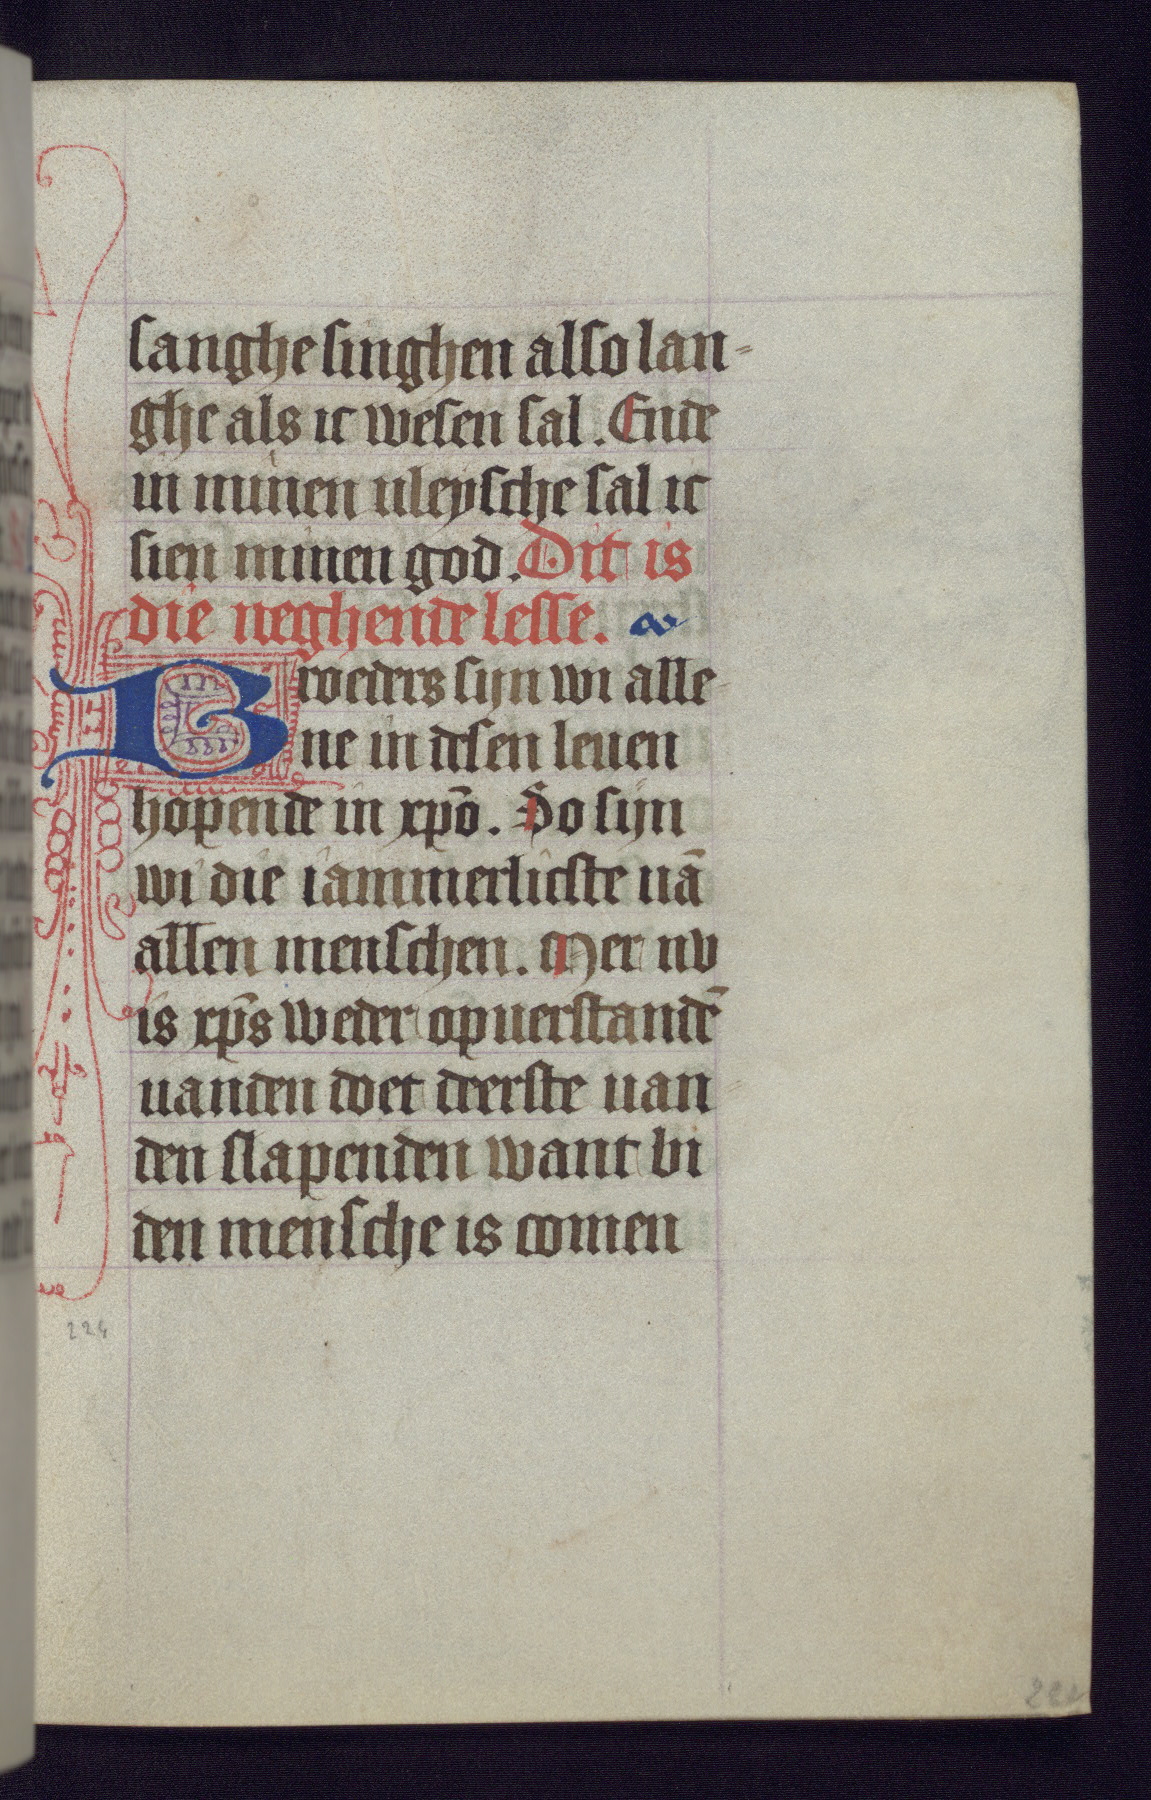 sanghe singhen also lan-
ghe als ic wesen sal. Ende
in minen uleysche sal ic
sien minen god. Dit is
die neghende lesse.
Broeders sijn wi alle-
ne in desen leuen
hopende in xpō. So sijn
wi die iammerlicste uā
allen menschen. Mer nv
is xp̄s weder opuerstandē
uanden doet deerste uan
den slapenden want bi
den mensche is comen
224